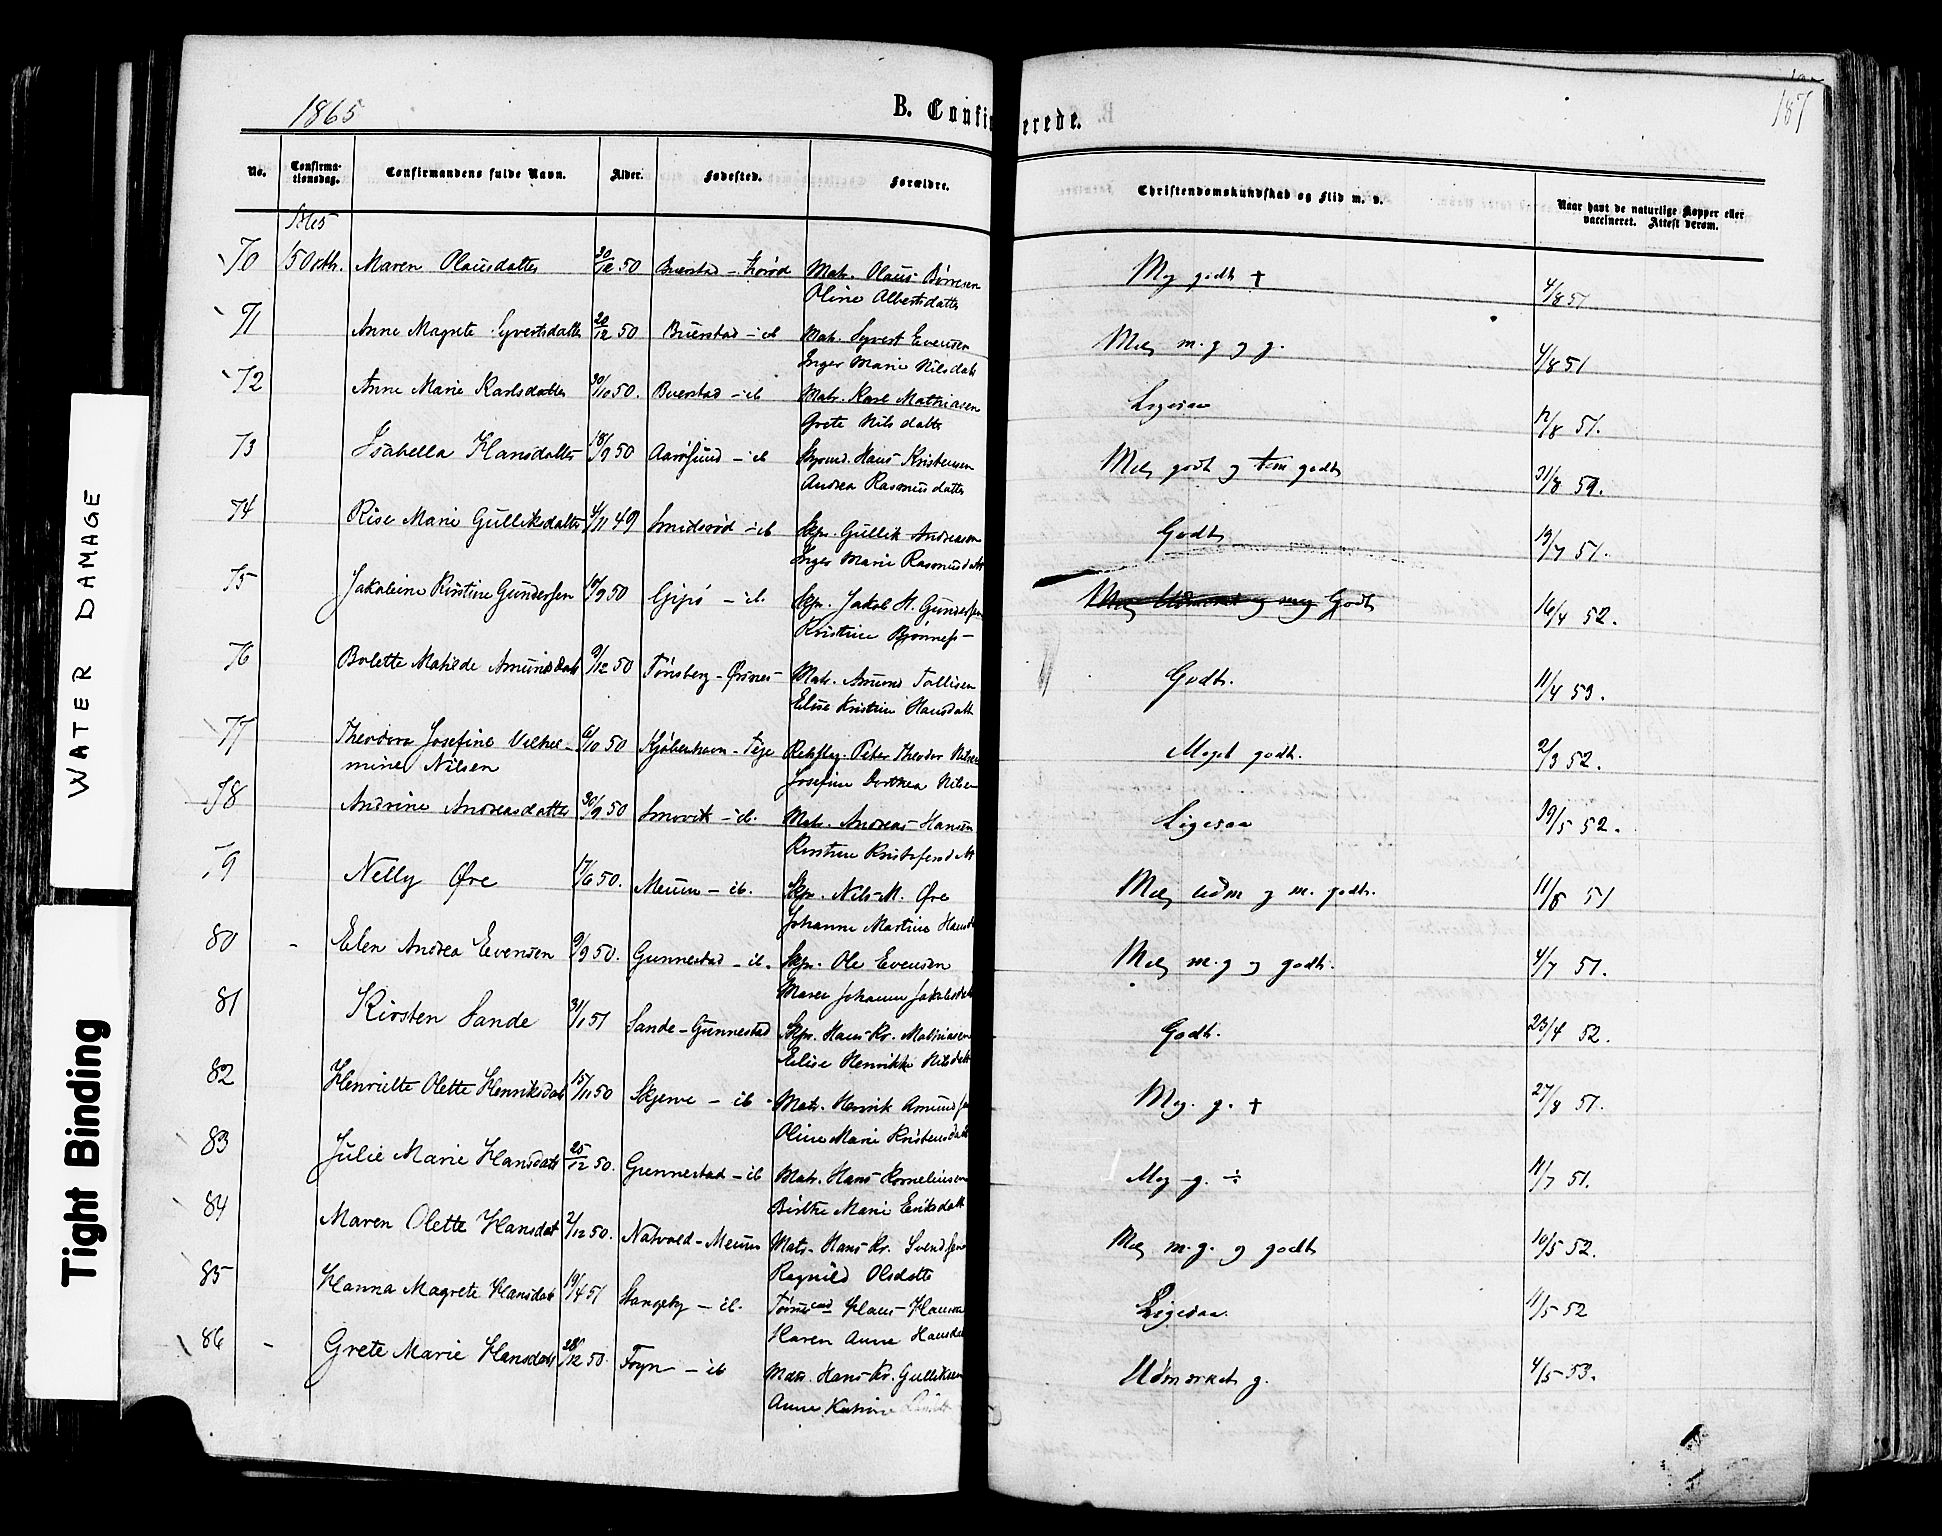 1865
B. Confirmerede.
187
No.
Confirma-
tionsdag.
Confirmandens fulde Navn.
Alder.
Fødested.
Forældre.
Christendomskundskab og Flid m. v.
Naar havt de naturlige Kopper eller
vaccineret. Attest derom.
1865
70 15 Octbr. Maren Olausdatter 30/12 50 Buerstad - Mat. Olaus Børresen Meg godt + 4/8 51
Oline Albertsdatter
71 Anne Magrete Syvertsdatter 20/12 50 Buerstad - ib Mat. Syvert Evensen Mlg m. g og g. 4/8 51
Inger Marie Nilsdatt
72 Anne Marie Karlsdatter 30/10 50. Buerstad - ib Mat. Karl Mathiasen Ligesaa 12/8 51.
Grete Nilsdatter
73 Isabella Hansdatter 18/9 50 Aarøsund - ib Hans Kristensen Mlg godt og tem godt 31/8 59.
Andrea Rasmusdatter
74 Rise Marie Gulliksdatter 4/11 49 Smidsrød - ib Skpr. Gullik Andreasen Godt 19/7 51.
Inger Marie Rasmusdatt
75 Jakobine Kirstine Gundersen 10/9 50 Gipø - ib. Skpr. Jakob H. Gundersen Godt 16/4 52.
Kristine Bjønness
76 Bolette Matilde Amundsdatt 9/12 50 Tønsberg - Ørsnes Mat. Amund Tollisen Godt. 11/4 53.
Elise Kristine Hansdatt
77 Theodora Josefine Vilhel- 6/10 50 Kjøbenhavn - Teje Peter Theodor Nilsen Meget godt. 2/3 52.
mine Nilsen
Josefine Dorthea Nilsen
78 Andrine Andreasdatter 30/9 50 Smovik - ib. Mat. Andreas Hansen Ligesaa 19/5 52.
Kirstine Kristofersdatt
79 Nelly Øre 17/6 50. Meum - ib. Skpr. Nils M. Øre Mlg udm og m. godt. 11/8 51
Johanne Martine Hansd
80 - Elen Andrea Evensen 9/9 50. Gunnestad - ib. Skpr. Ole Evensen Mlg m. g og godt. 4/7 51.
Maren Johanne Jakobsdatt
81 Kirsten Sande 31/1 51 Sande - Gunnestad Skpr. Hans Kr. Mathiasen Godt. 23/4 52.
Elise Henrikke Nilsdatt
82 Henriette Olette Henriksdat 15/11 50 Skjerve - ib. Mat. Henrik Amundsen Meg. g. + 27/8 51.
Oline Marie Kristensdatt
83 Julie Marie Hansdatt 25/12 50. Gunnestad - ib Mat. Hans Kornelinsen Meg g. ÷ 11/7 51.
Birthe Marie Eriksdatt
84 Maren Olette Hansdat 2/12 50. Natvold - Meum Mat. Hans Kr. Svendsen Mlg m. g. og godt 10/5 52.
Ragnild Olsdatter
85 Hanna Magrete Hansdat 19/4 51 Stangeby - ib. Tømmermd Hans Hansen Ligesaa. 11/5 52
Karen Anne Hansdat
86 - Grete Marie Hansdatt 28/12 50. Fogn - ib Mat. Hans Kr. Gulliksen Udmærket g. 4/5 53.
Anne Katrine
WATER DAMAGE
Tight Binding